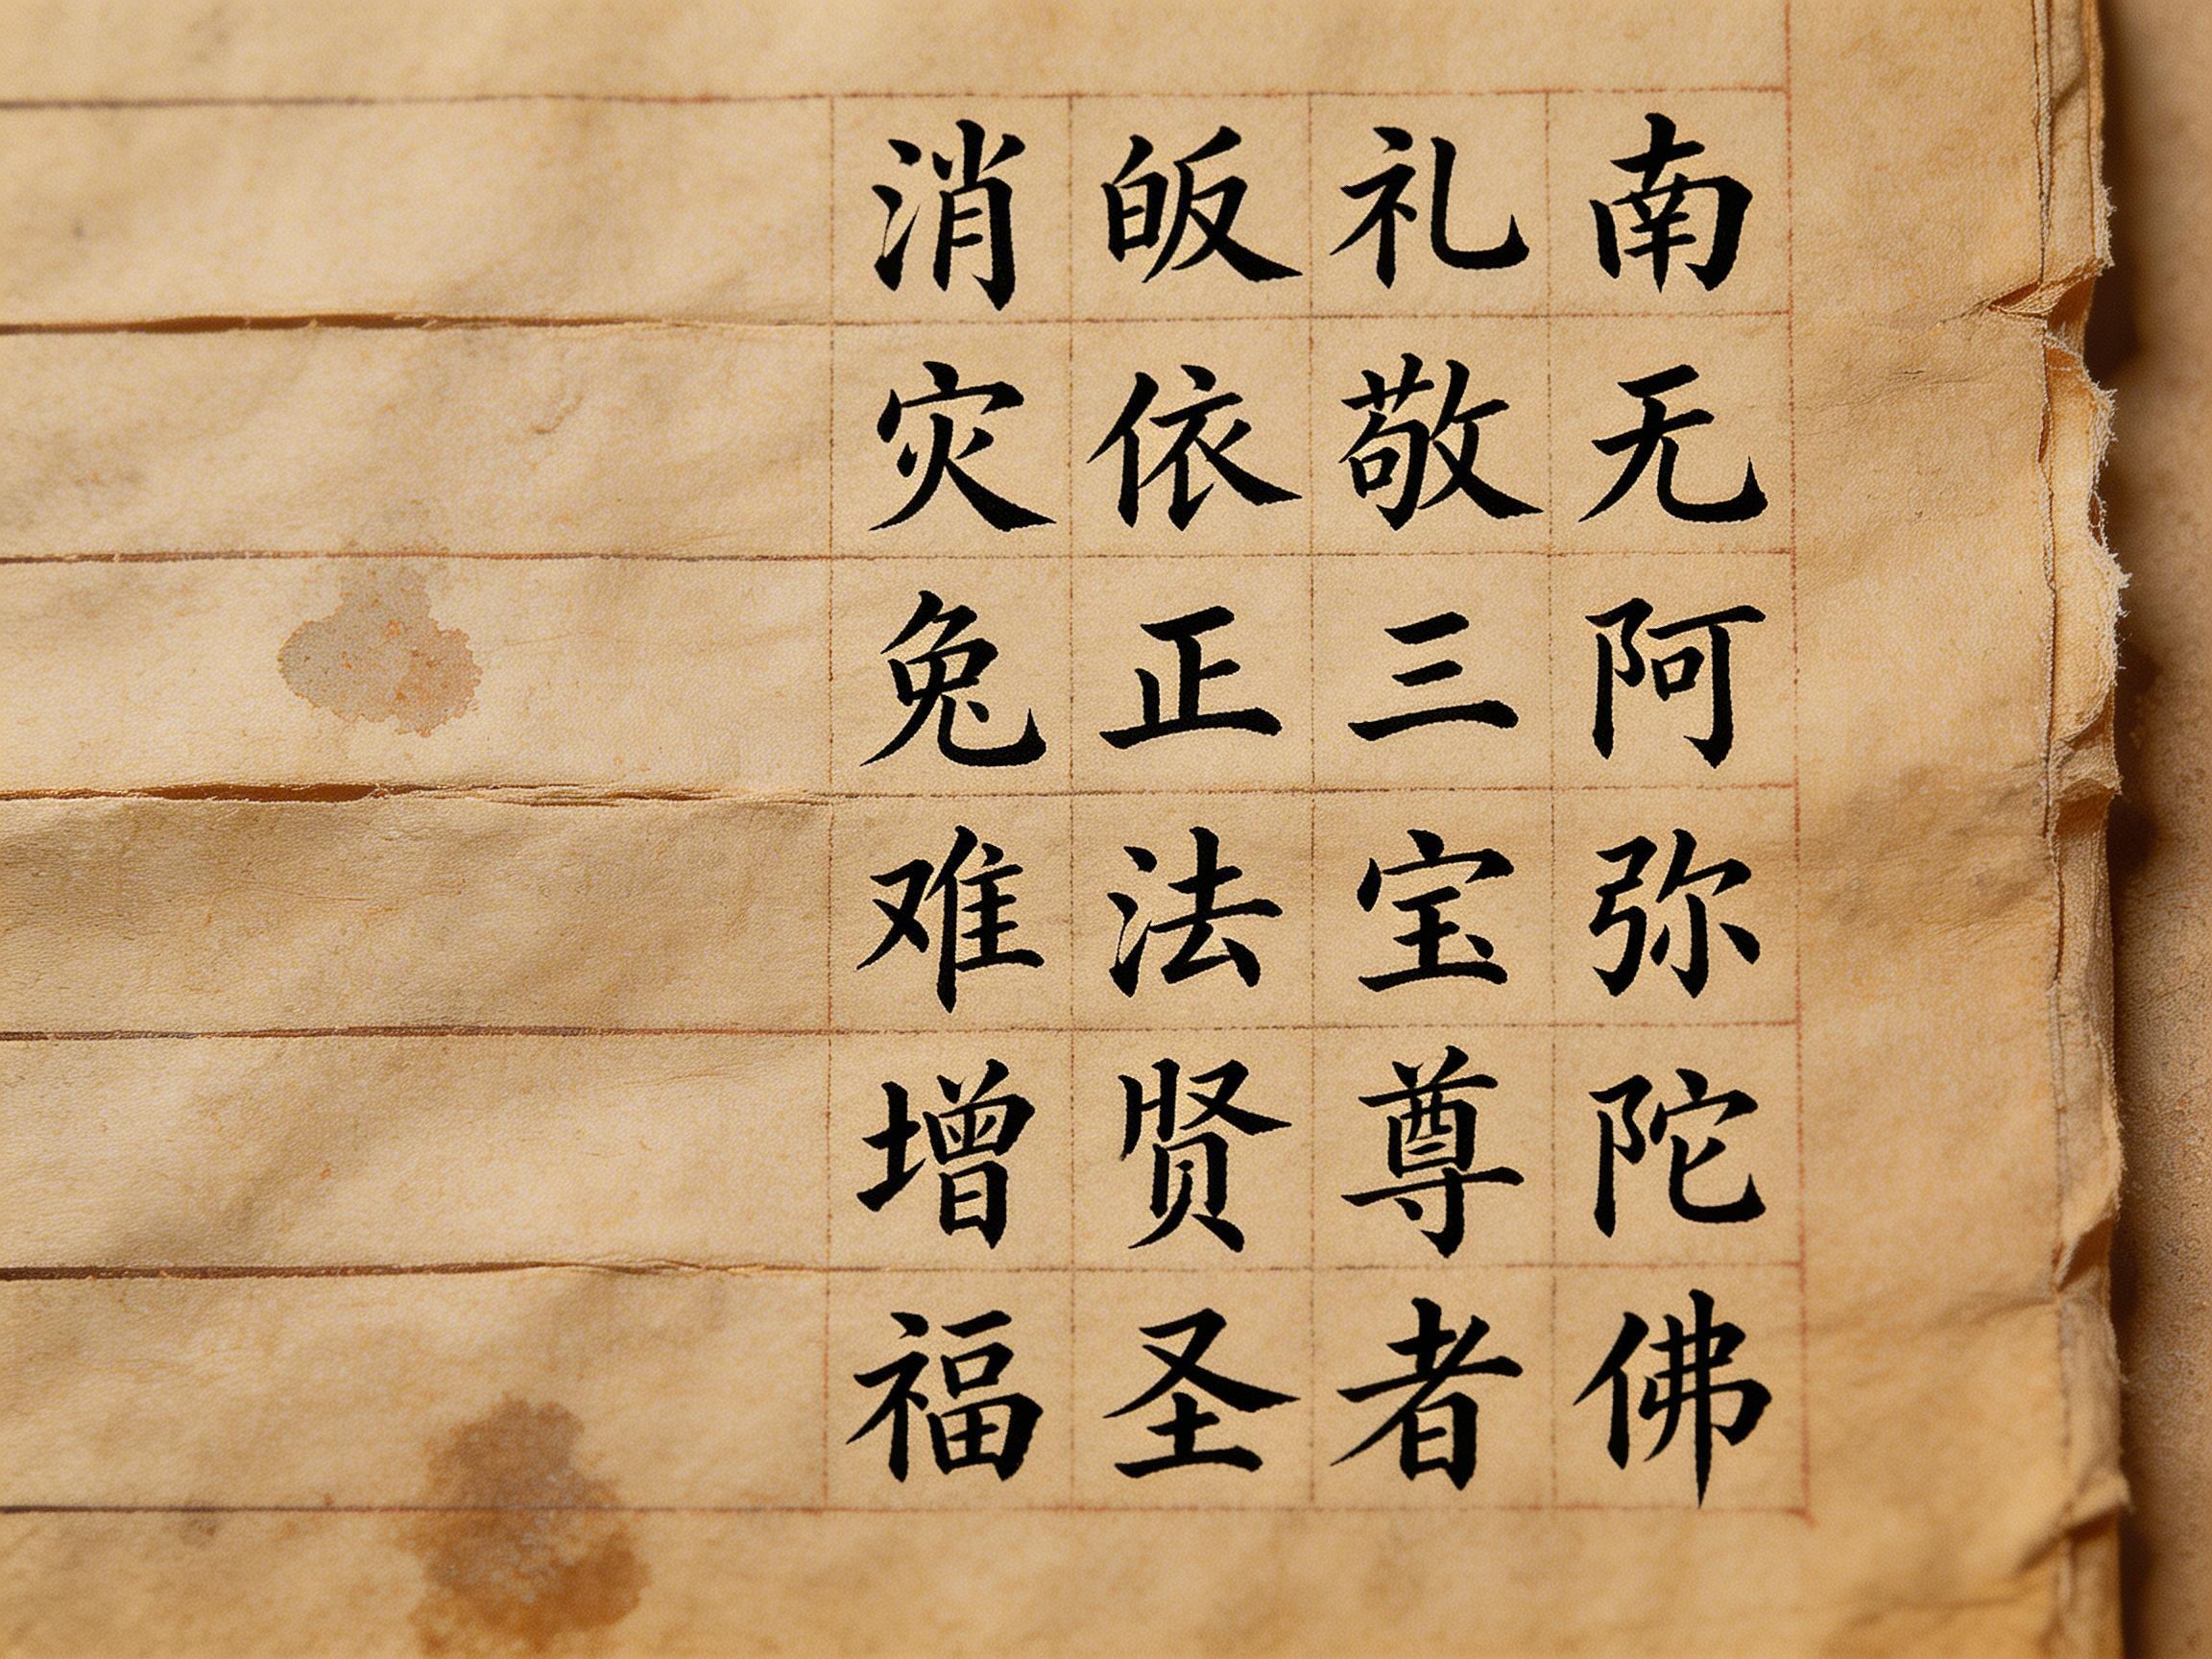 南无阿弥陀佛
礼敬三宝尊者
皈依正法贤圣
消灾兔难增福